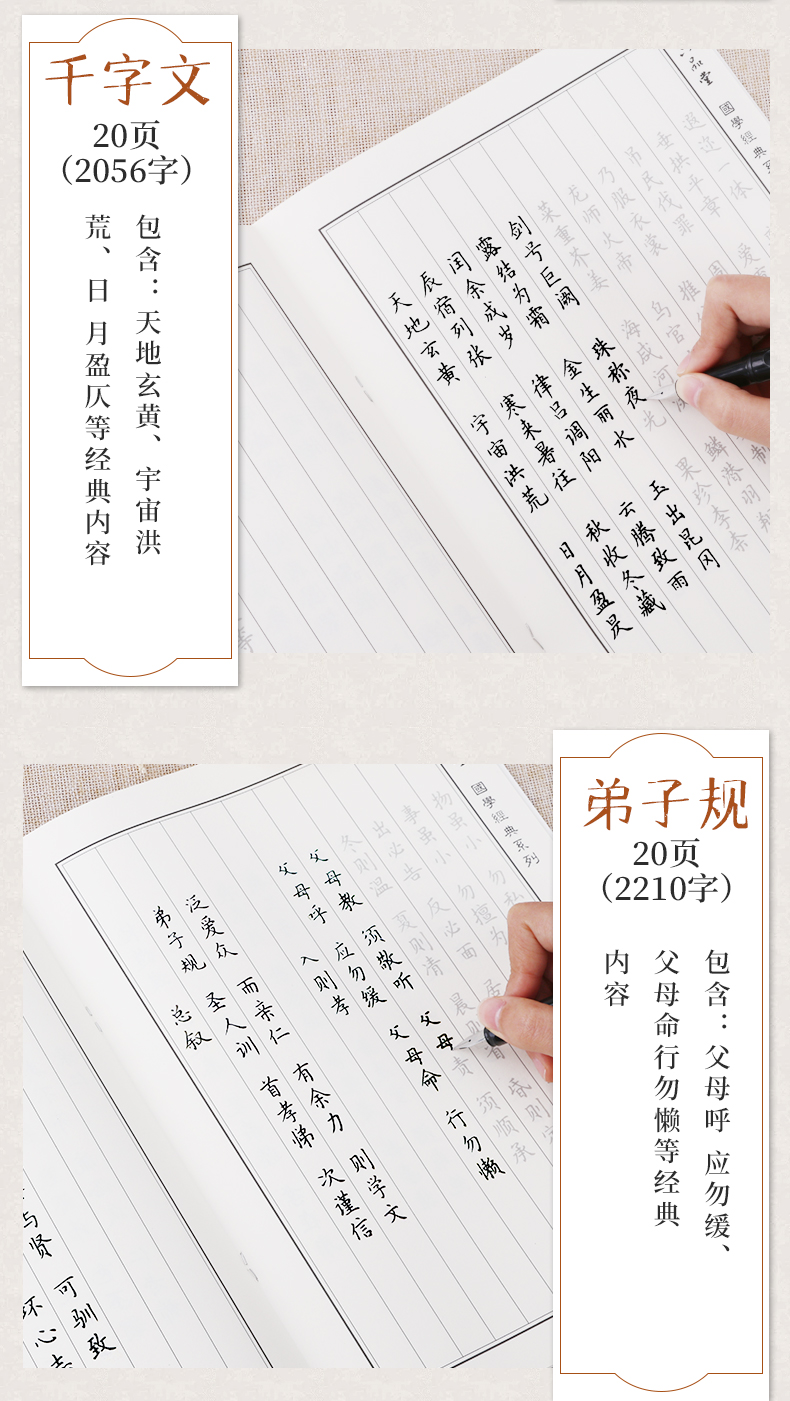 千字文
20页
（2056字）
包含：天地玄黄、宇宙洪
荒、日 月盈仄等经典内容
品堂
國學經典系
天地玄黄 宇宙洪荒 日月盈昃
辰宿列张 寒来暑往 秋收冬藏
闰余成岁 律吕调阳 云腾致雨
露结为霜 金生丽水 玉出昆冈
剑号巨阙 珠称夜光 果珍李柰
菜重芥姜 海咸河淡 鳞潜羽翔
龙师火帝 鸟官 制
乃服衣裳 推
吊民伐罪 周
垂拱平章 爱
遐迩一体
弟子规
20页
（2210字）
包含：父母呼 应勿缓、
父母命行勿懒等经典
内容
國學經典系列
弟子规 总叙
圣人训 首孝悌 次谨信
泛爱众 而亲仁 有余力 则学文
入则孝
父母呼 应勿缓 父母命 行勿懒
父母教 须敬听 父母责 须顺承
冬则温 夏则凊 晨则省 昏则定
出必告 反必面 居
事虽小 勿擅为
物虽小 勿私
与贤
坏心志
可驯致